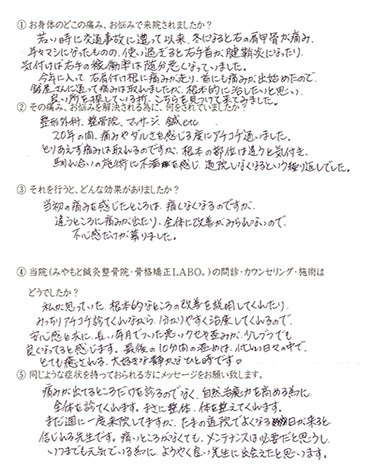 ① お身体のどこの痛み、お悩みで来院されましたか?
若い時に交通事故に遭って以来、冬になると右の肩甲骨が痛み、
年々マシになったものの、使い過ぎると右手首が腱鞘炎になったり、
気付けば右手の稼働率は随分悪くなっていました。
今年に入って、右肩付け根に痛みが走り、首にも痛みが出始めたので、
鍼屋さんに通って痛みは取れましたが、根本的に治したいと思い、
良い所を探している折、こちらを見つけて来てみました。
② その痛み、お悩みを解決される為に、何をされていましたか?
整形外科、整骨院、マッサージ、鍼 etc
20年の間、痛みやダルさを感じる度にアチコチ通いました。
とりあえず痛みは取れるのですが、根本の部位は違うと気付き、
馴れ合いの施術に不満を感じ、通院しなくなるという繰り返しでした。
③ それを行うと、どんな効果がありましたか?
当初の痛みを感じたところは、痛くなくなるのですが、
違うところに痛みが出たり、全体に改善がみられないので、
不信感だけが募りました。
④ 当院(みやもと鍼灸整骨院・骨格矯正LABO。)の問診・カウンセリング・施術は
どうでしたか?
私が思っていた、根本的なところの改善を説明してくれたり、
みっちりアチコチ診てくれながら、分かりやすく治療してくれるので、
安心感と共に、長い年月でついた悪いクセや歪みが、少しづつでも
良くなってると感じます。最後の10分間の
とても癒される、大好きな静かなひと時です。
⑤ 同じような症状を持っておられる方にメッセージをお願い致します。
痛みが出てるところだけを診るのでなく、自然治癒力を高める為に
全体を診てくれます。まさに整体、体を整えてくれます。
まだ週に一度来院してますが、たまの通院でよくなる日が来ると
信じれる先生です。痛いところがなくても、メンテナンスは必要だと思うし、
いつまでも元気でいる為に、ようやく良い先生に出会えたと思います。